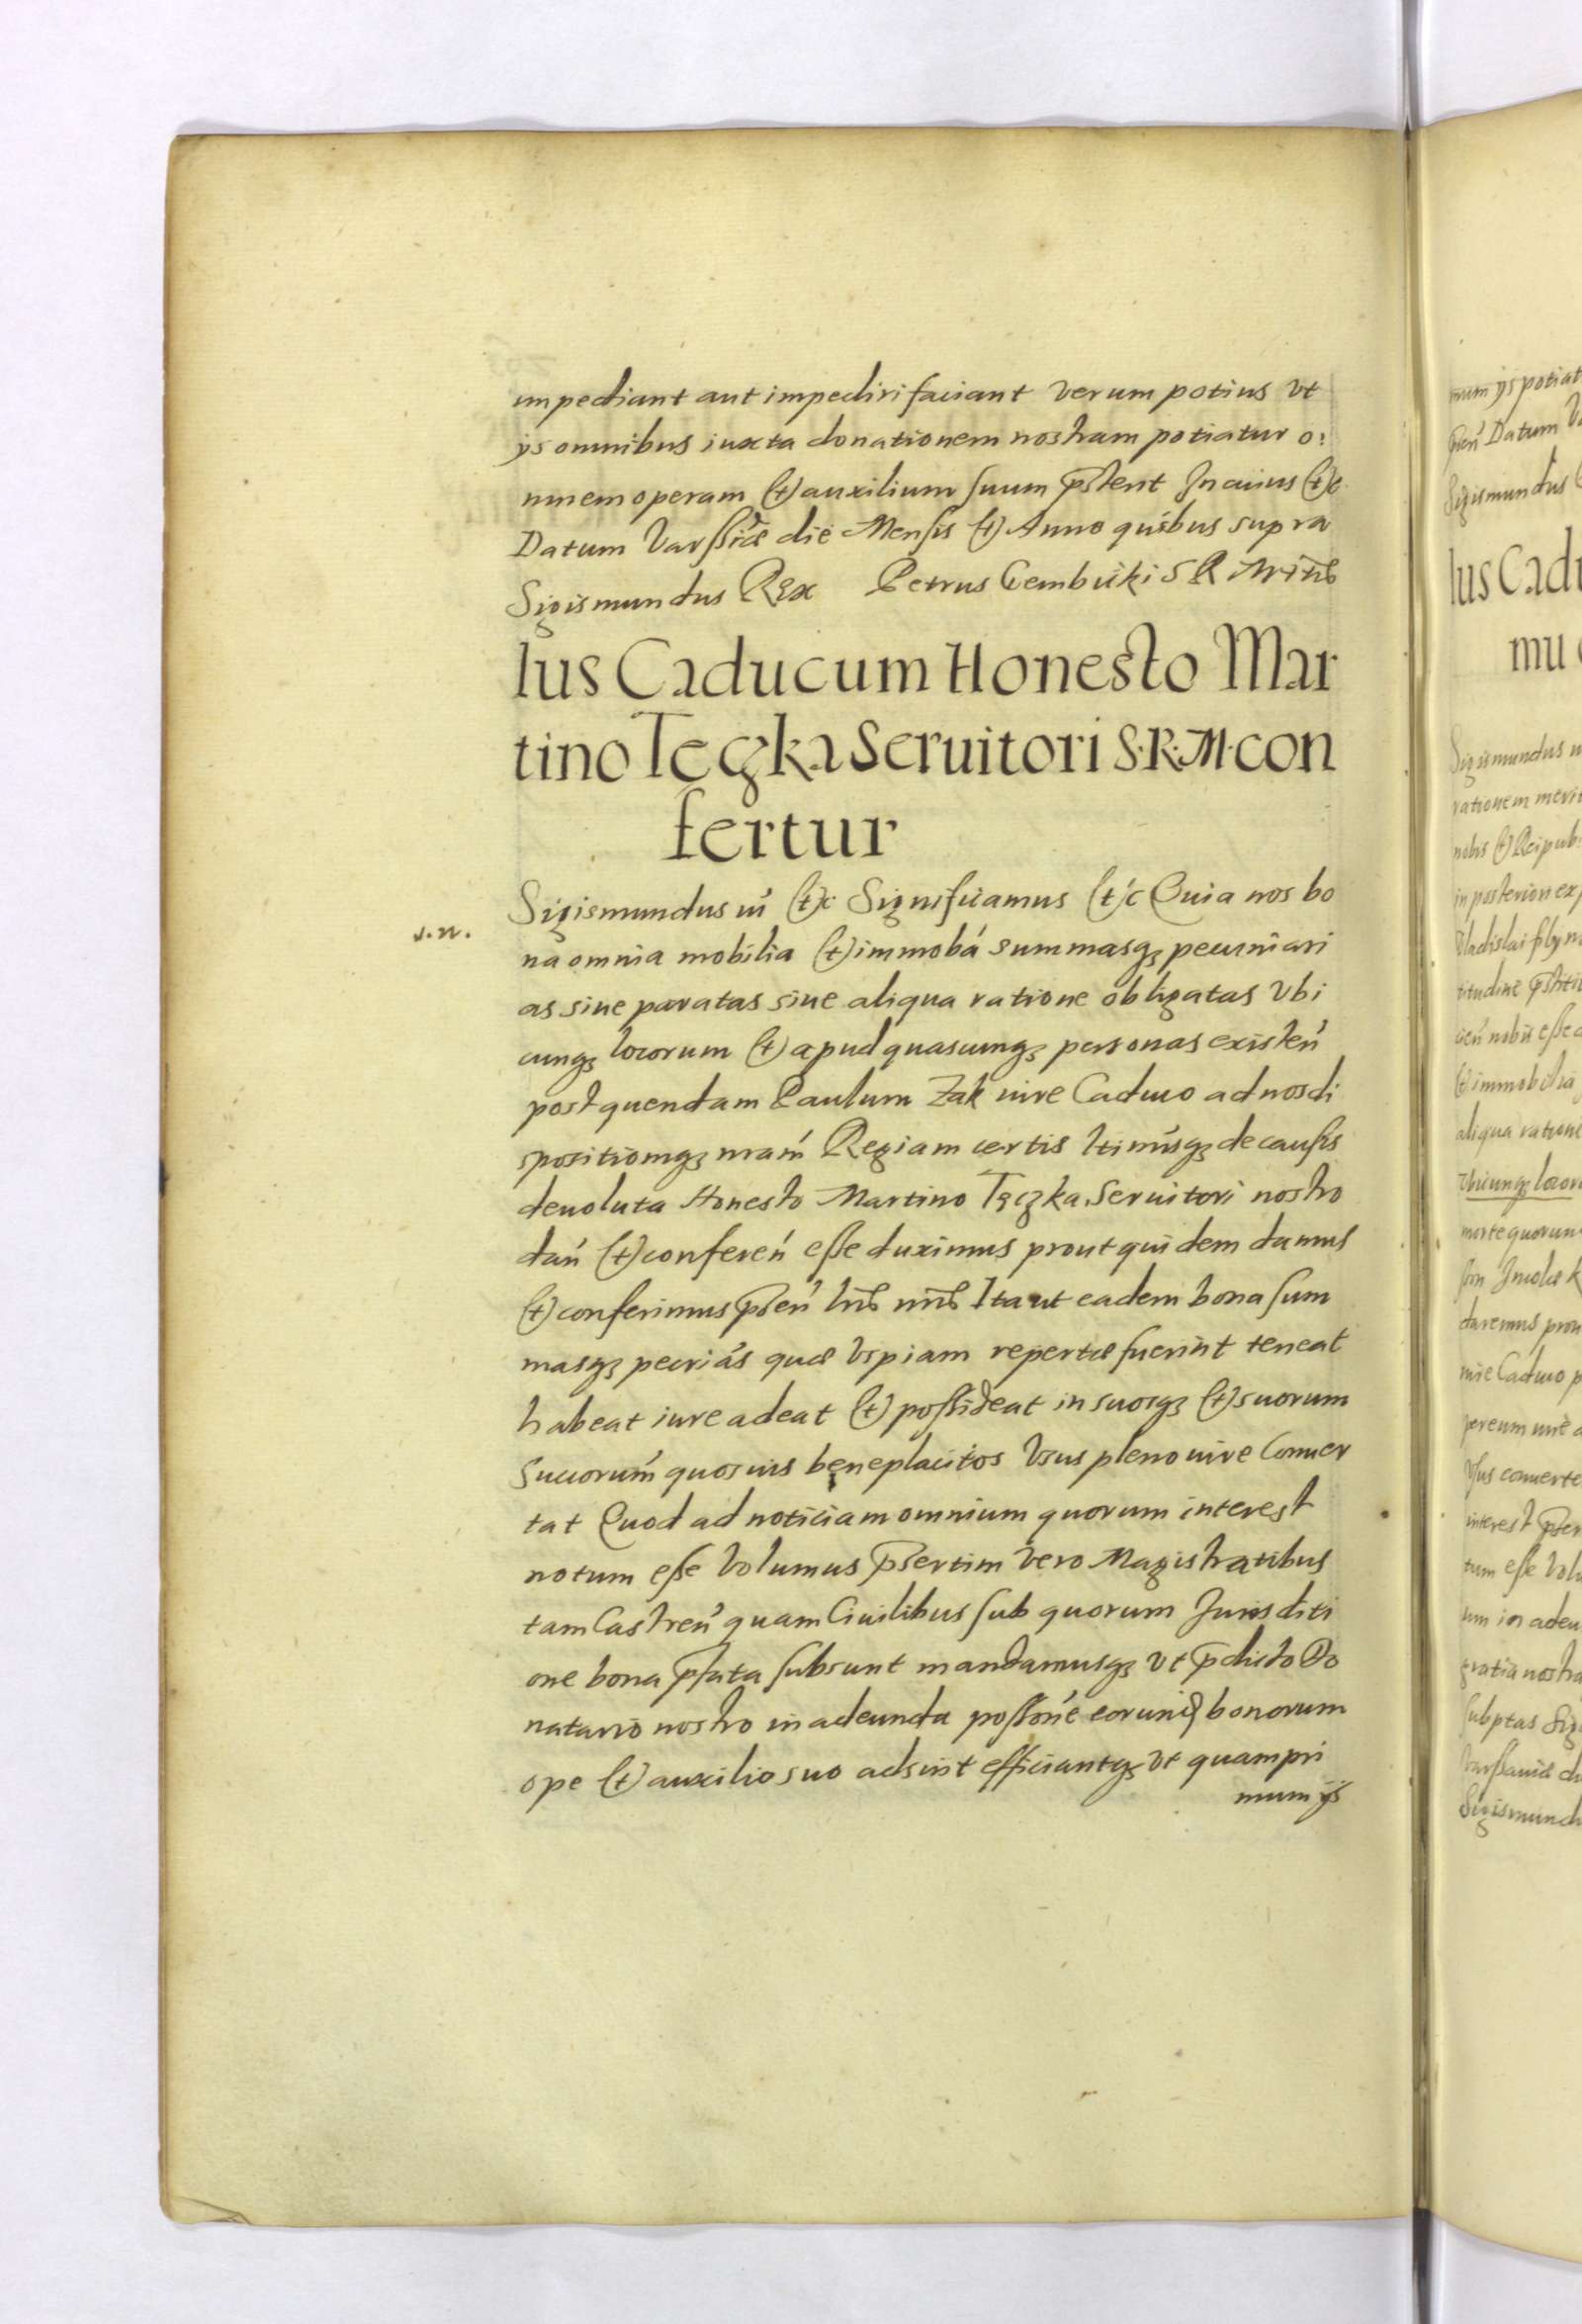 impediant aut impediri faciant Verum potius Vt
ijs omnibus iuxta donationem nostram potiatur o:
mnem operam (et) auxilium suum p̄stent In cuius (et)c
Datum Varssiæ die Mensis (et) Anno quibus supra
Sigismundus Rex Petrus Gembicki S R
Ius Caducum Honesto Mar
tino Tęczka Seruitori S·R·M·con
fertur
Sigismundus iii (et)c Significamus (et)c Quia nos bo
s.n.
na omnia mobilia (et) immobá summasqȝ pecuniari
as siue paratas siue aliqua ratione obligatas Vbi
cunqȝ locorum (et) apud quascunqȝ personas existeń
post quendam Paulum Zak iure Caduco ad nos di
spositiomqȝ nram̃ Regiam certis ltimisqȝ de causis
deuoluta Honesto Martino Tęczka Seruitori nostro
dań (et) confereń esse duximus prout quidem damus
(et) conferimus p̄seń lr̃is nr̃is Ita ut eadem bona sum
masqȝ pecriás quæ Vspiam repertæ fuerint teneat
habeat iure adeat (et) possideat in suosqȝ (et) suorum
Succorum̃ quosuis beneplacitos Vsus pleno iure Conuer
tat Quod ad noticiam omnium quorum interest
notum esse Volumus p̄sertim Vero Magistratibus
tam Castreń quam Ciuilibus sub quorum Iurisditi
one bona p̄fata subsunt mandamusqȝ Vt p̄dicto Do
natario nostro in adeunda possone eorund bonorum
ope (et) auxilio suo adsint efficiantqȝ Vt quampri
mum ijs
mum ijs potiat
Datum
Sigismundus
Ius Cadu
mu
Sigismundus
rationem meri
nobis (et) Reipub:
in posterum ex
Vladislai
titudine p̄stiti
nobis esse
(et) immobilia
aliqua ratione
Vbicunqȝ locor
morte quorum
daremus prou
iure Caduco p
per eum iure
Vsus conuerte
interest p̄ser
tum esse Volu
adeu
gratia nostra
subptas
Varssauiæ di
Sigismund